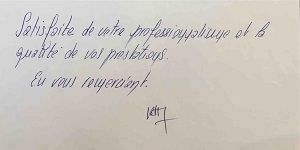 Satisfaite de votre professionnalisme et la
qualité de vos prestations.
En vous remerciant.